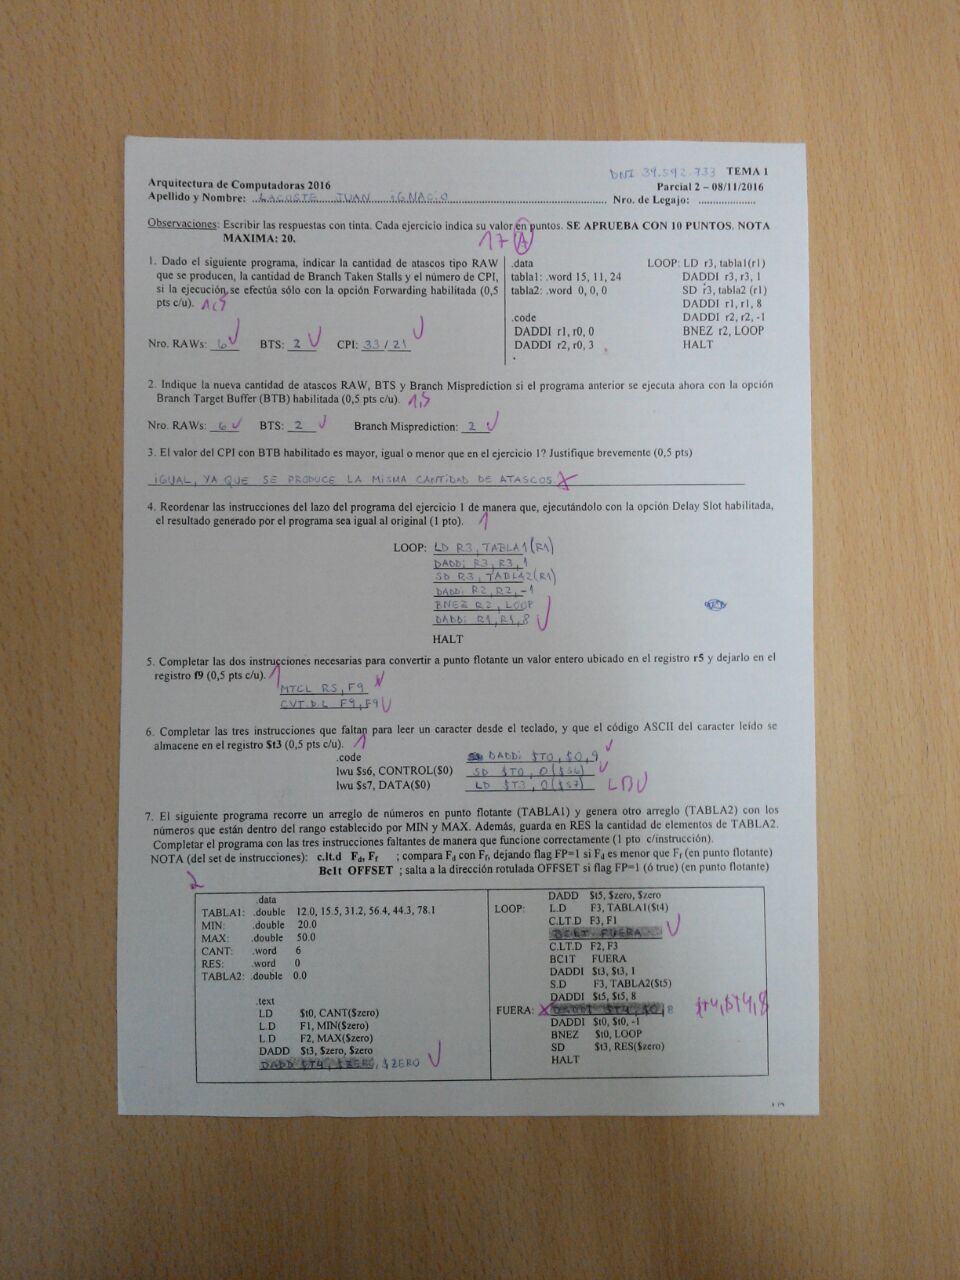 DNI 39.592.733 TEMA 1
Arquitectura de Computadoras 2016 Parcial 2 – 08/11/2016
Apellido y Nombre: LACOSTE JUAN IGNACIO Nro. de Legajo: ....................
Observaciones: Escribir las respuestas con tinta. Cada ejercicio indica su valor en puntos. SE APRUEBA CON 10 PUNTOS. NOTA
MAXIMA: 20.
17 (A)
1. Dado el siguiente programa, indicar la cantidad de atascos tipo RAW
que se producen, la cantidad de Branch Taken Stalls y el número de CPI,
si la ejecución se efectúa sólo con la opción Forwarding habilitada (0,5
pts c/u). 1,5
Nro. RAWs: 6 BTS: 2 CPI: 33/21
.data
tabla1: .word 15, 11, 24
tabla2: .word 0, 0, 0
.code
DADDI r1, r0, 0
DADDI r2, r0, 3
LOOP: LD r3, tabla1(r1)
DADDI r3, r3, 1
SD r3, tabla2 (r1)
DADDI r1, r1, 8
DADDI r2, r2, -1
BNEZ r2, LOOP
HALT
2. Indique la nueva cantidad de atascos RAW, BTS y Branch Misprediction si el programa anterior se ejecuta ahora con la opción
Branch Target Buffer (BTB) habilitada (0,5 pts c/u). 1,5
Nro. RAWs: 6 BTS: 2 Branch Misprediction: 2
3. El valor del CPI con BTB habilitado es mayor, igual o menor que en el ejercicio 1? Justifique brevemente (0,5 pts)
IGUAL, YA QUE SE PRODUCE LA MISMA CANTIDAD DE ATASCOS.
4. Reordenar las instrucciones del lazo del programa del ejercicio 1 de manera que, ejecutándolo con la opción Delay Slot habilitada,
el resultado generado por el programa sea igual al original (1 pto). 1
LOOP: LD R3, TABLA1(R1)
DADDi R3, R3, 1
SD R3, TABLA2(R1)
DADDi R2, R2, -1
BNEZ R2, LOOP
DADDi R1, R1, 8
HALT
5. Completar las dos instrucciones necesarias para convertir a punto flotante un valor entero ubicado en el registro r5 y dejarlo en el
registro f9 (0,5 pts c/u). 1
MTC1 R5, F9
CVT.D.L F9, F9
6. Completar las tres instrucciones que faltan para leer un caracter desde el teclado, y que el código ASCII del caracter leído se
almacene en el registro $t3 (0,5 pts c/u). 1
.code DADDi $T0, $0, 9
lwu $s6, CONTROL($0) SD $T0, 0($S6)
lwu $s7, DATA($0) LD $T3, 0($S7) LBU
7. El siguiente programa recorre un arreglo de números en punto flotante (TABLA1) y genera otro arreglo (TABLA2) con los
números que están dentro del rango establecido por MIN y MAX. Además, guarda en RES la cantidad de elementos de TABLA2.
Completar el programa con las tres instrucciones faltantes de manera que funcione correctamente (1 pto c/instrucción).
NOTA (del set de instrucciones): c.lt.d Fd, Ff ; compara Fd con Ff, dejando flag FP=1 si Fd es menor que Ff (en punto flotante)
Bc1t OFFSET ; salta a la dirección rotulada OFFSET si flag FP=1 (ó true) (en punto flotante)
2
.data
TABLA1: .double 12.0, 15.5, 31.2, 56.4, 44.3, 78.1
MIN: .double 20.0
MAX: .double 50.0
CANT: .word 6
RES: .word 0
TABLA2: .double 0.0
.text
LD $t0, CANT($zero)
L.D F1, MIN($zero)
L.D F2, MAX($zero)
DADD $t3, $zero, $zero
DADD $T4, $ZERO, $ZERO
DADD $t5, $zero, $zero
LOOP: L.D F3, TABLA1($t4)
C.LT.D F3, F1
BC1T FUERA
C.LT.D F2, F3
BC1T FUERA
DADDI $t3, $t3, 1
S.D F3, TABLA2($t5)
DADDI $t5, $t5, 8
FUERA: DADDI $T4, $0, 8 $t4,$t4,8
DADDI $t0, $t0, -1
BNEZ $t0, LOOP
SD $t3, RES($zero)
HALT